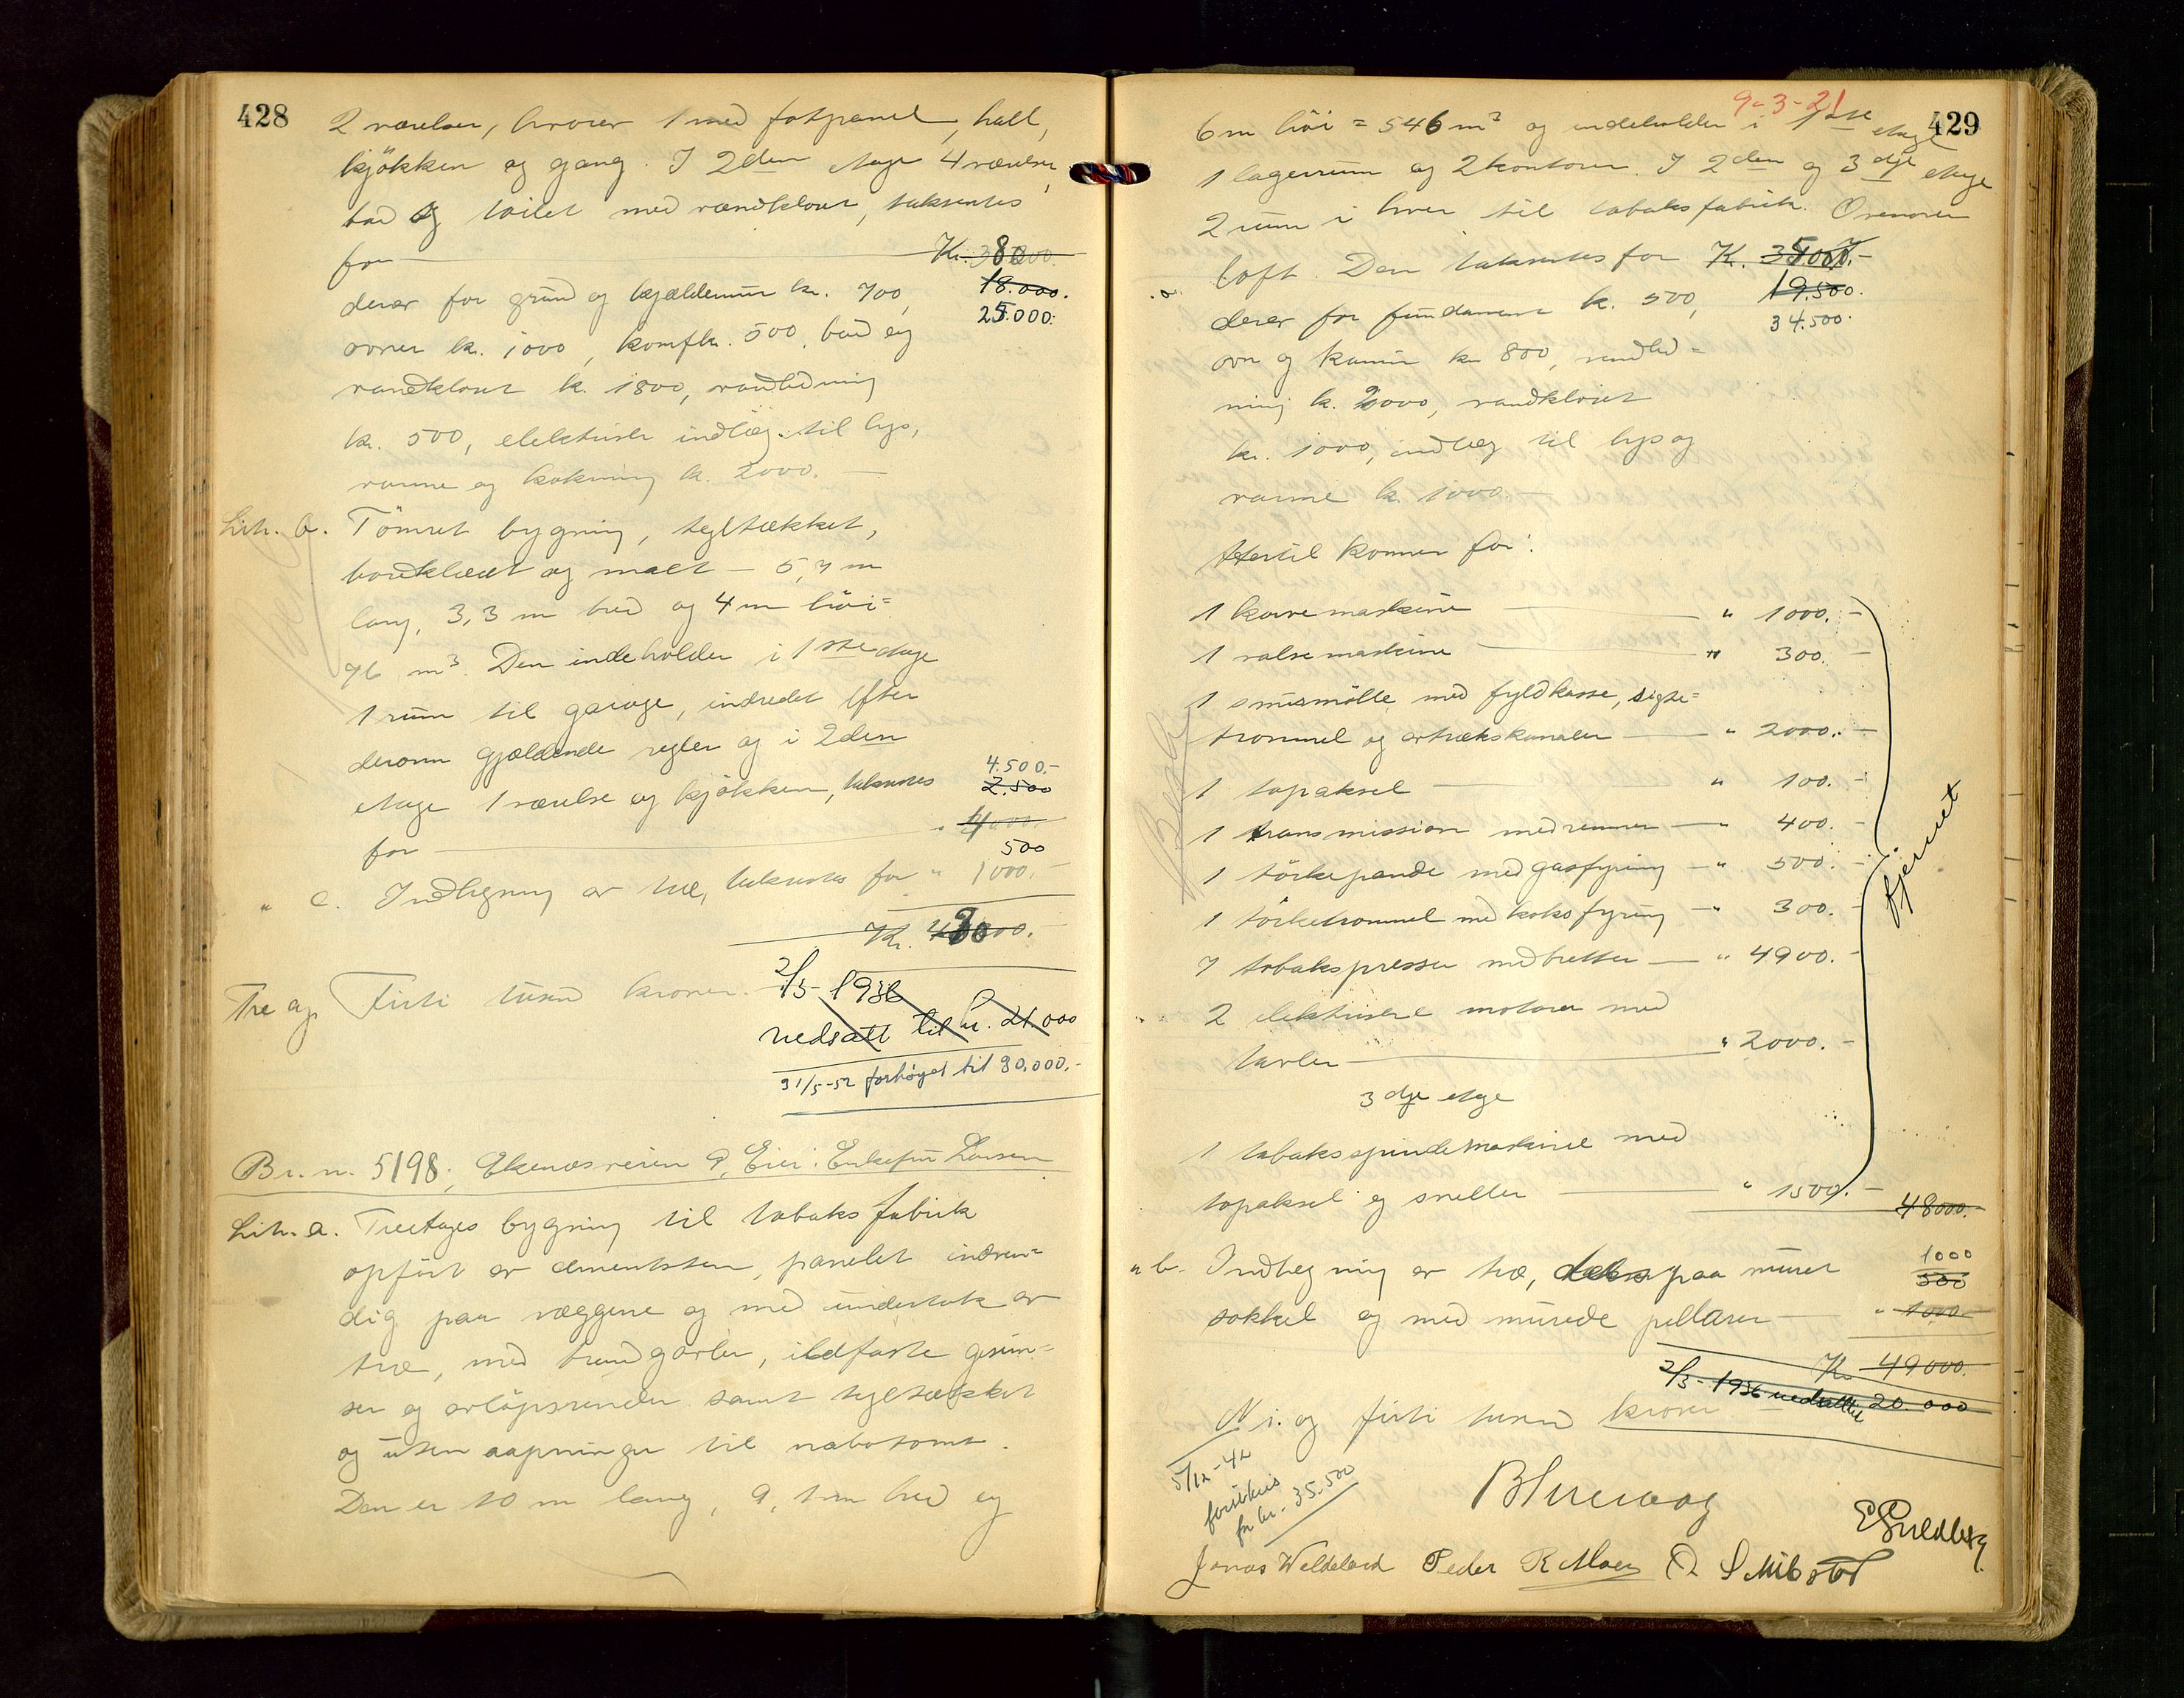 428
2 værelser, hvorav 1 med fotpanel, hall,
kjökken og gang. I 2den etage 4 værelser,
bad og toilet med vandkloset, taksertes
for — Kr. 38000.
18.000.
derav for grund og kjældermur kr. 700,
25.000.
ovner kr. 1000, komfhr. 500, bad og
vandkloset kr. 1800, vandledning
kr. 500, elektrisk indlæg til lys,
varme og kokning kr. 2000. —
Lit. b. Tömret bygning, tegltækket,
bordklædt og malt — 5,7 m
lang, 3,3 m bred og 4 m höi =
76 m³. Den indeholder i 1ste etage
1 rum til garage, indredet efter
derom gjældende regler og i 2den
etage 1 værelse og kjökken, taksertes
4.500.-
2.500
for — " 4000.
500
" c. Indhegning av træ, taksertes for " 1000. -
Kr. 43000.
Tre og Firti tusind kroner.
2/5- 1936
nedsatt til kr. 21.000
31/5-52 forhøyet til 30.000.-
Br. n. 5198, Ekenæsveien 9, Eier: Enkefru Larsen
Lit. a. Treetages bygning til tobaksfabrik
opfört av cementsten, panelet indven=
dig paa væggene og med undertak av
træ, med brandgavler, ildfaste gesim=
ser og avlöpsrender samt tegltækket
og uten aapninger til nabotomt.
Den er 10 m lang, 9,1 m bred og
9-3-21
429
6 m höi = 546 m³ og indeholder i 1ste etage
1 lagerrum og 2 kontorer. I 2den og 3dje etage
2 rum i hver til tobaksfabrik. Ovenover
loft. Den taksertes for Kr. 35000.-
19.500.
derav for fundament kr. 500,
34.500.
ovn og kamin kr. 800, vandled=
ning kr. 2000, vandkloset
kr. 1000, indlæg til lys og
varme kr. 1000. —
Hertil kommer for:
1 karvemaskine — " 1000. -
1 valsemaskine — " 300. -
1 snusmölle med fyldkasse, sigte=
trommel og avtrækskanaler — " 2000. -
1 topaksel — " 100. -
1 transmission med remmer — " 400. -
1 törkepande med gasfyring — " 500. -
1 törketrommel med koksfyring — " 300. -
7 tobakspresser med bretter — " 4900. -
fjernet
2 elektriske motorer med
tavler — " 2000. -
3dje etage
1 tobaksspindemaskine med
topaksel og sneller — " 1500. -
48000.-
" b. Indhegning av træ, dels paa muret
1000
500
sokkel og med murede pillarer — " 1000
Kr. 49000.
2/5- 1936 nedsatt til 20.000
Ni og firti tusind kroner
5/12-42
forsikres
for kr. 35.500
E Guldberg
Jonas Weldeland Peder R Moen